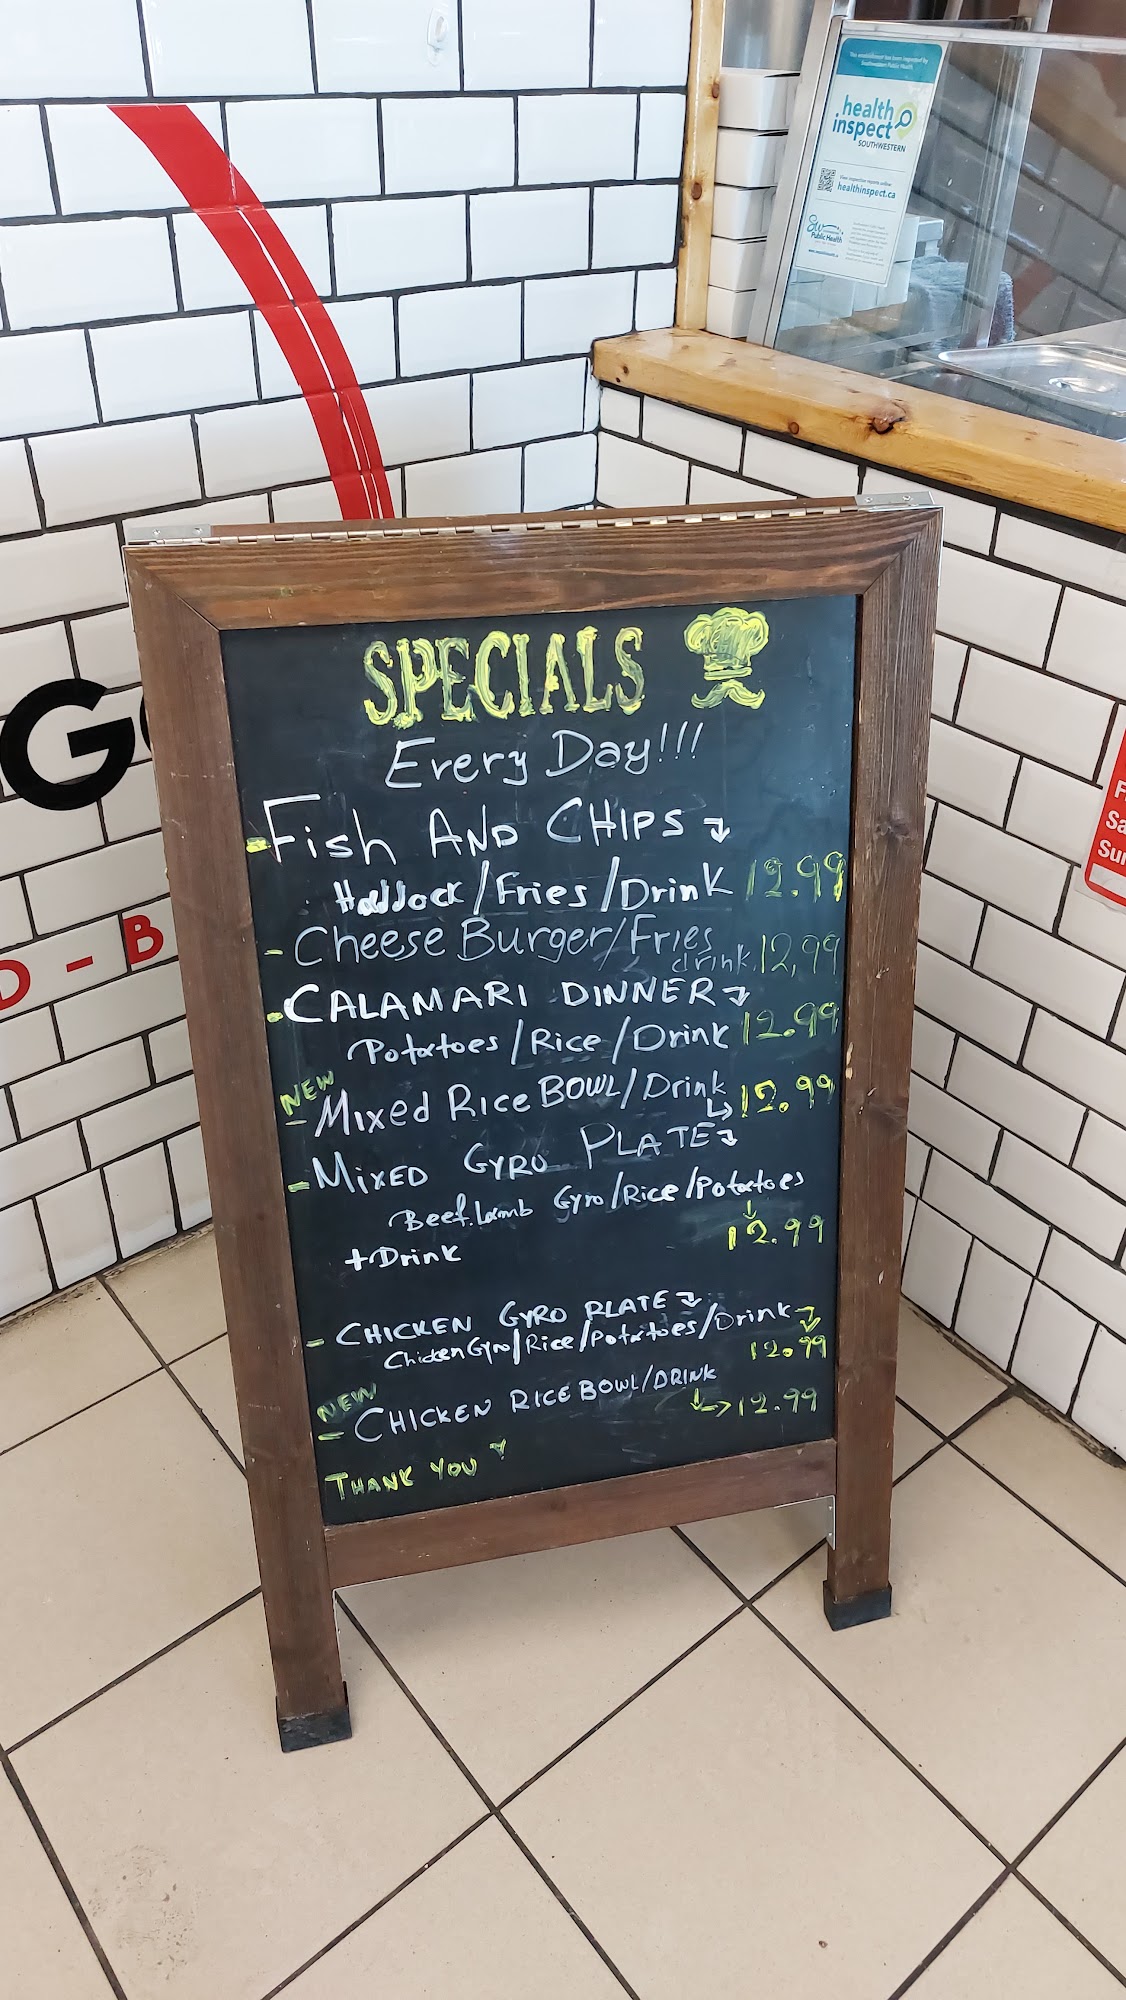 This establishment has been inspected by
Southwestern Public Health
health
inspect
SOUTHWESTERN
View inspection reports online:
healthinspect.ca
Public Health
SPECIALS
Every Day!!!
- Fish AND CHIPS
Haddock/Fries/Drink 12.99
- Cheese Burger/Fries
drink 12,99
- CALAMARI DINNER
Potatoes/Rice/Drink 12.99
NEW
- Mixed Rice BOWL/Drink
12.99
- MIXED GYRO PLATE
Beef.Lamb Gyro/Rice/Potatoes
+Drink 12.99
- CHICKEN GYRO PLATE
Chicken Gyro/Rice/Potatoes/Drink
12.99
NEW
- CHICKEN RICE BOWL/DRINK
12.99
THANK YOU
G
D - B
F
Sa
Sun